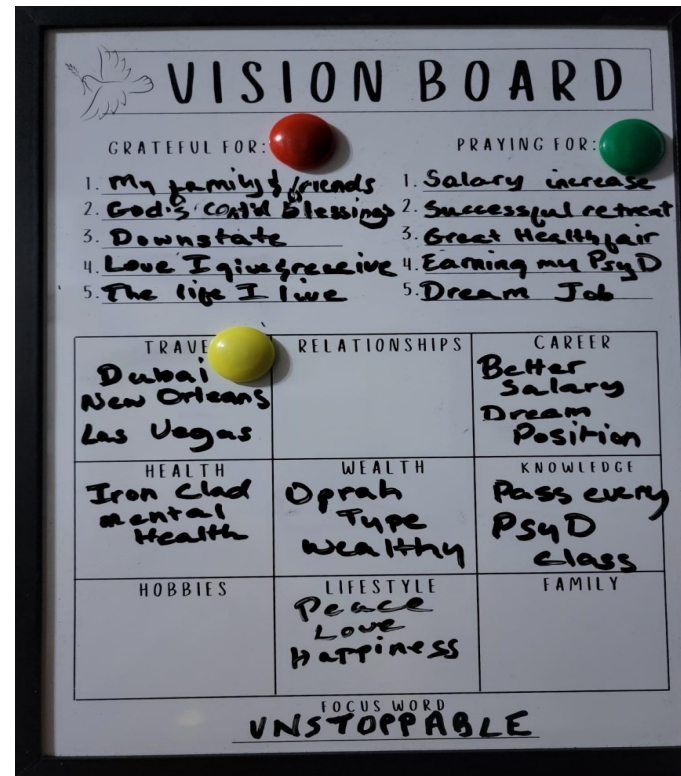 VISION BOARD
GRATEFUL FOR:
1. My family & friends
2. God's cont'd blessings
3. Downstate
4. Love I give & receive
5. The life I live
PRAYING FOR:
1. Salary increase
2. Successful retreat
3. Great Health fair
4. Earning my PsyD
5. Dream Job
TRAVE
Dubai
New Orleans
Las Vegas
RELATIONSHIPS
CAREER
Better
Salary
Dream
Position
HEALTH
Iron Clad
mental
Health
WEALTH
Oprah
Type
wealthy
KNOWLEDGE
Pass every
PsyD
class
HOBBIES
LIFESTYLE
Peace
Love
Happiness
FAMILY
FOCUS WORD
UNSTOPPABLE